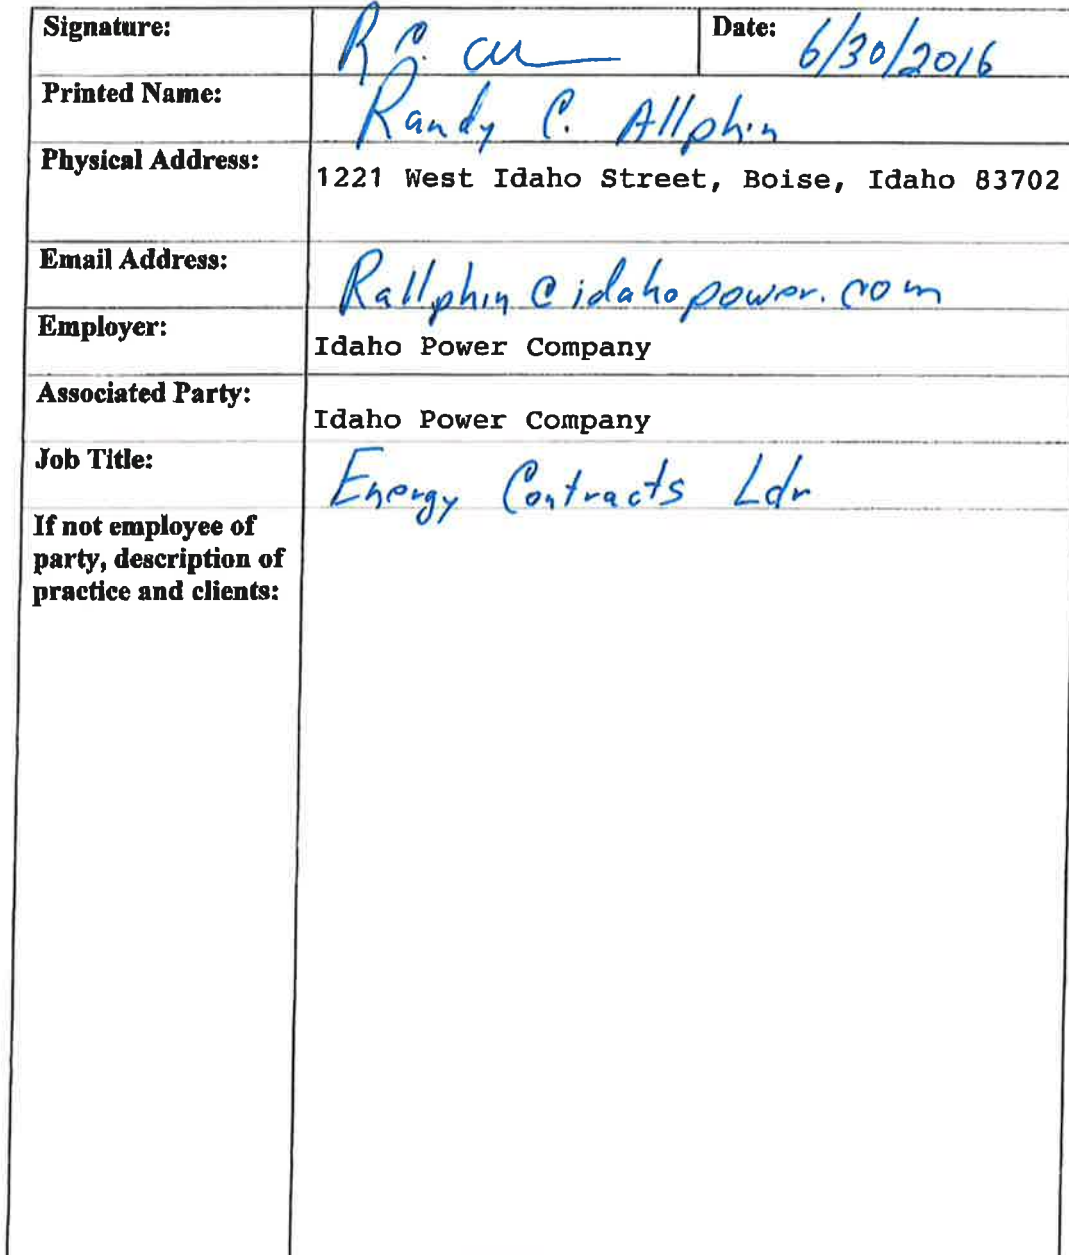 Signature: R C. All Date: 6/30/2016
Printed Name: Randy C. Allphin
Physical Address: 1221 West Idaho Street, Boise, Idaho 83702
Email Address: Rallphin@idahopower.com
Employer: Idaho Power Company
Associated Party: Idaho Power Company
Job Title: Energy Contracts Ldr
If not employee of
party, description of
practice and clients: